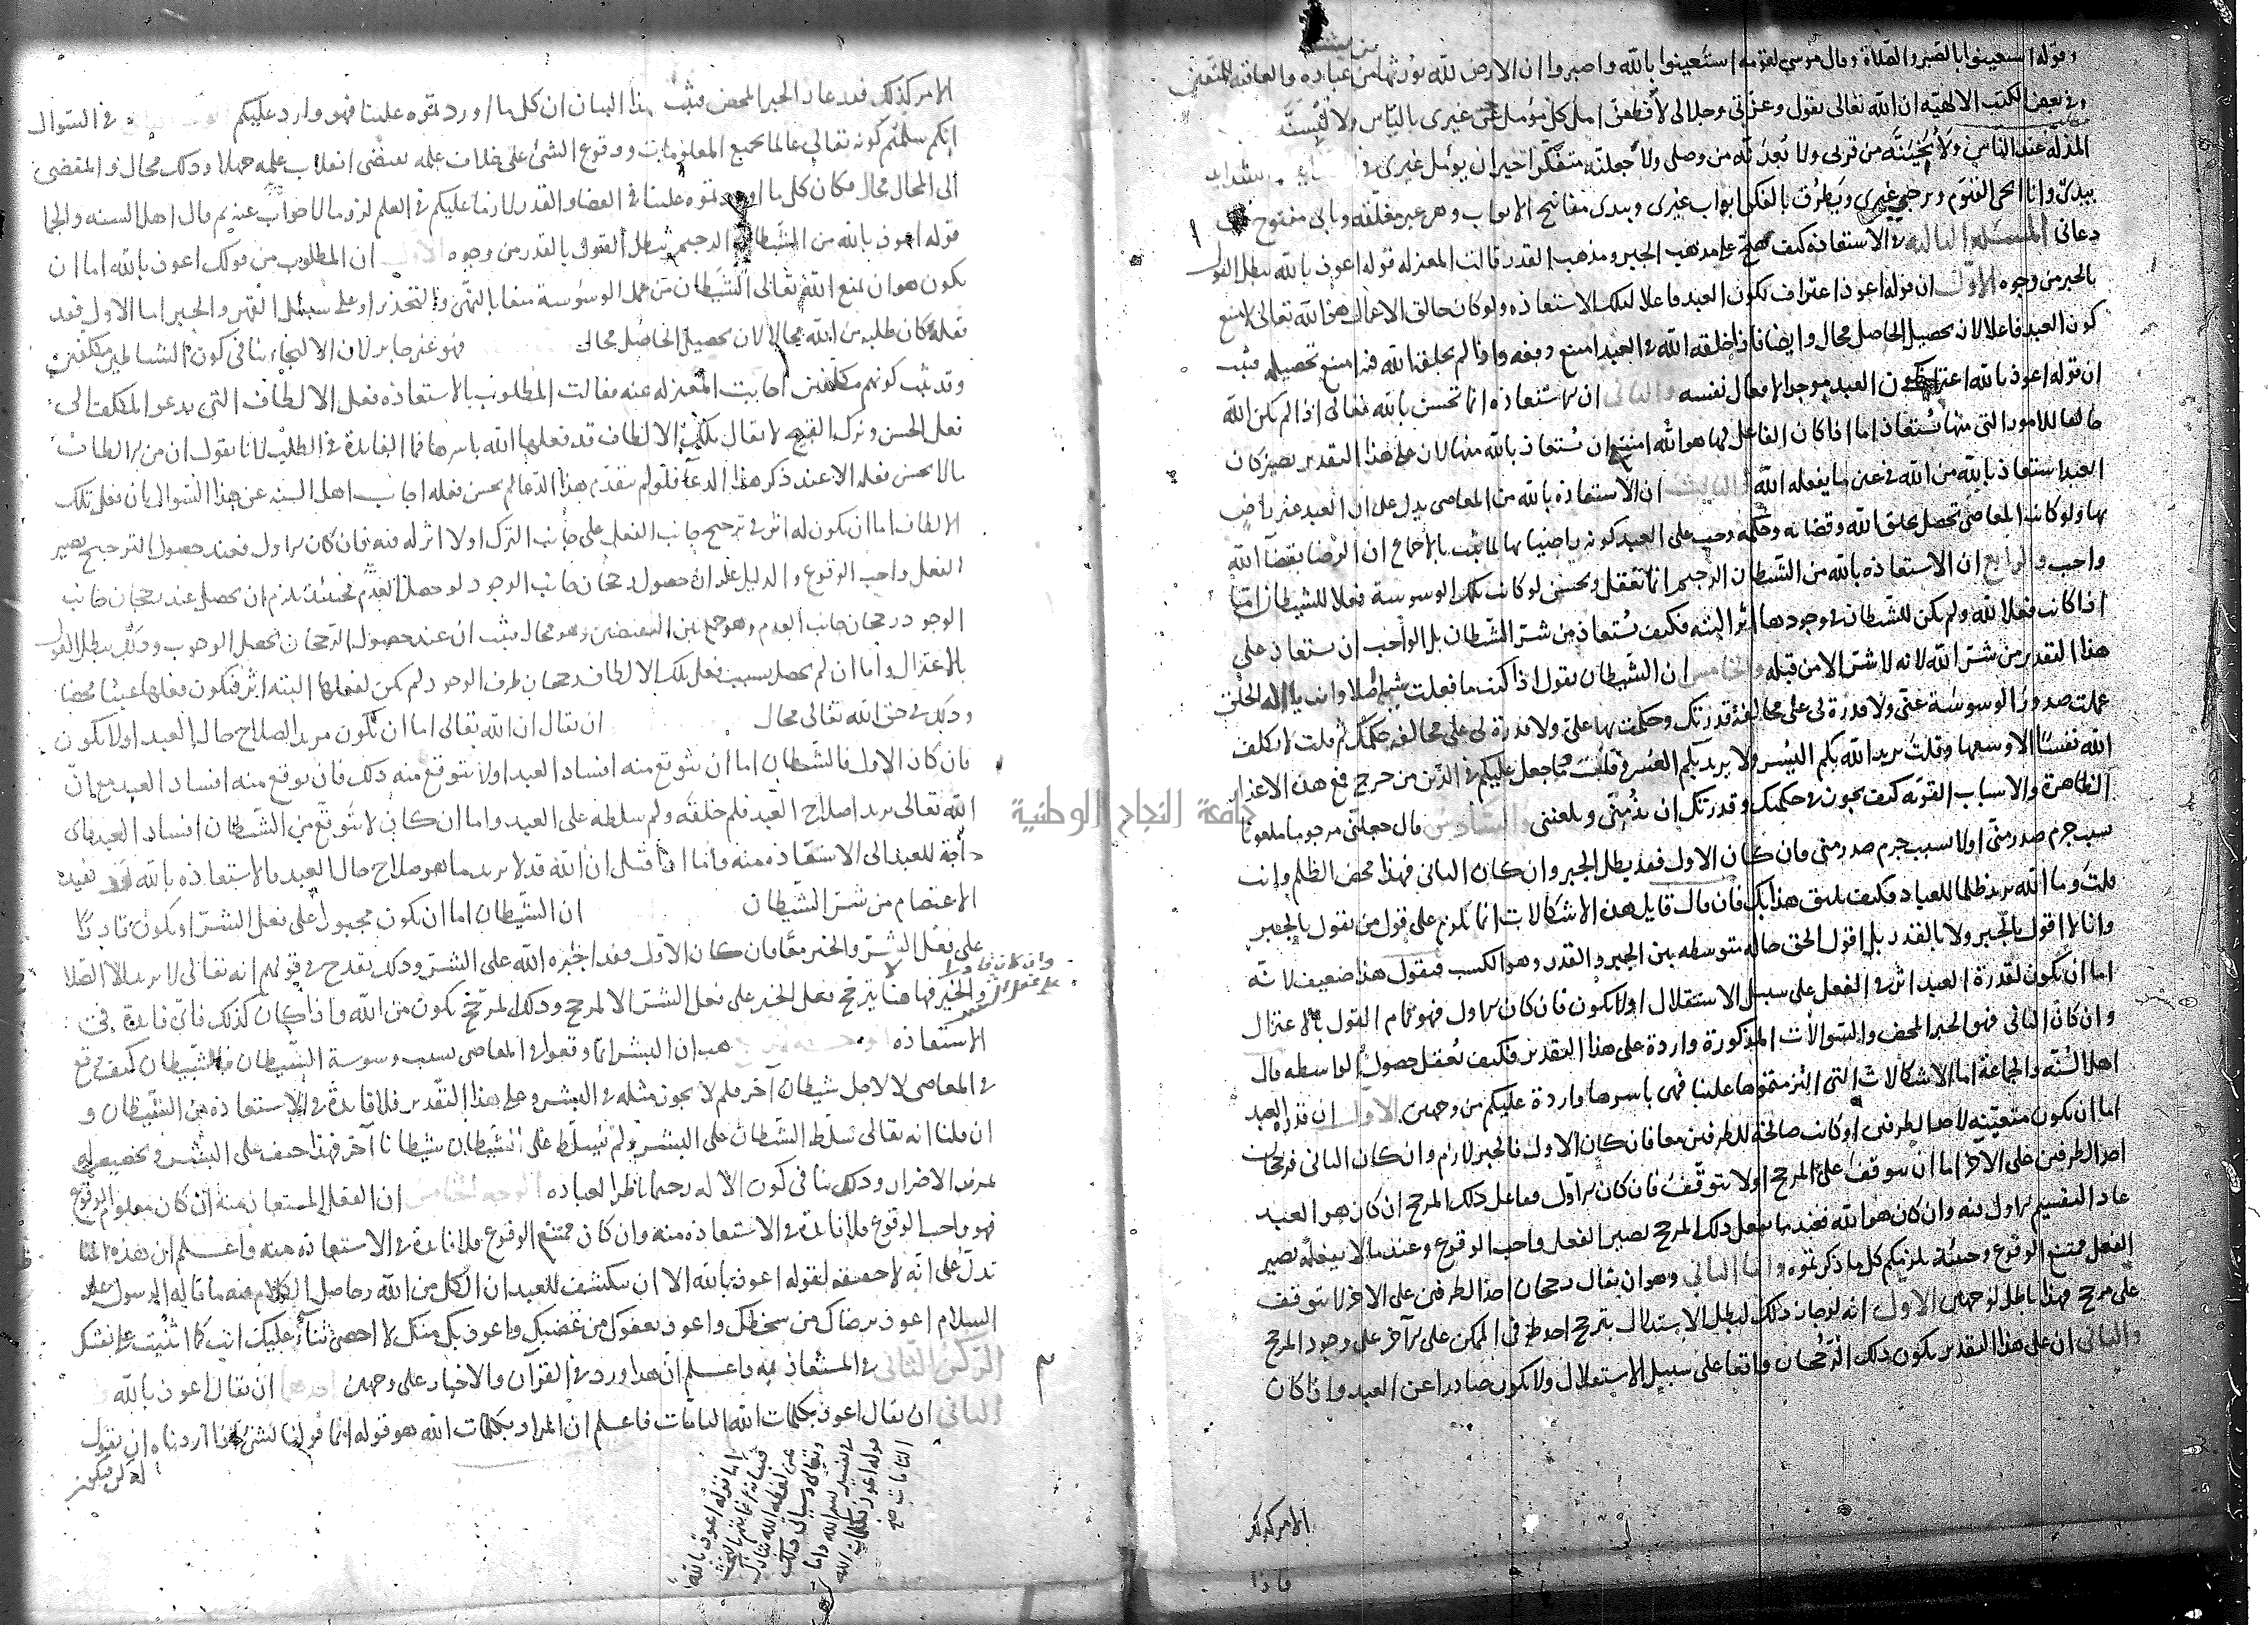 وقوله استعينوا بالصبر والصلاة وقال موسى لقومه استعينوا بالله واصبروا ان الارض لله يورثها من يشاء من عباده والعاقبة للمتقين
وفي بعض الكتب الالهية ان الله تعالى يقول وعزتي وجلالي لأقطعن امل كل مؤمل غيري بالياس ولألبسنه
المذلة عند الناس ولأخيبنه من قربي ولأبعدنه من وصلي ولأجعلنه متفكرا حيران يؤمل غيري في الشدائد والشدائد
بيدي وانا الحي القيوم ويرجي غيري ويطرق بالفكر ابواب غيري وبيدي مفاتيح الابواب وهي مغلقة وبابي مفتوح لمن
دعاني المسئلة الثالثة في ان الاستعاذة كيف تصح على مذهب الجبر ومذهب القدر قالت المعتزلة قوله اعوذ بالله يبطل القول
بالجبر من وجوه الاول ان قوله اعوذ اعتراف بكون العبد فاعلا لتلك الاستعاذة ولو كان خالق الاعمال هو الله تعالى لامتنع
كون العبد فاعلا لان تحصيل الحاصل محال وايضا فاذا خلقه الله في العبد امتنع دفعه واذا لم يخلقه الله فيه امتنع تحصيله فثبت
ان قوله اعوذ بالله اعتراف بكون العبد موجدا لافعال نفسه والثاني ان الاستعاذة انما تحسن بالله تعالى اذا لم يكن الله
خالقا للامور التي منها يستعاذ اما اذا كان الفاعل لها هو الله امتنع ان يستعاذ بالله منها لان على هذا التقدير يصير كان
العبد استعاذ بالله من الله في عين ما يفعله الله والثالث ان الاستعاذة بالله من المعاصي يدل على ان العبد غير راض
بها ولو كانت المعاصي تحصل بخلق الله وقضائه وحكمه وجب على العبد كونه راضيا بها لما ثبت بالاجماع ان الرضا بقضاء الله
واجب والرابع ان الاستعاذة بالله من الشيطان الرجيم انما تعقل وتحسن لو كانت تلك الوسوسة فعلا للشيطان اما
اذا كانت فعلا لله ولم يكن للشيطان في وجودها اثر البتة فكيف يستعاذ من شر الشيطان بل الواجب ان يستعاذ على
هذا التقدير من شر الله لانه لا شر الا من قبله والخامس ان الشيطان يقول اذا كنت ما فعلت شيئا اصلا وانت يا اله الخلق
عملت صدور الوسوسة عني ولا قدرة لي على مخالفة قدرتك وحكمت بها علي ولا قدرة لي على مخالفة حكمك ثم قلت لا يكلف
الله نفسا الا وسعها وقلت يريد الله بكم اليسر ولا يريد بكم العسر وقلت وما جعل عليكم في الدين من حرج فمع هذه الاعذار
الظاهرة والاسباب القوية كيف يجوز في حكمتك وقدرتك ان تذمني وتلعنني والسادس قال جعلتني مرجوما ملعونا
بسبب جرم صدر مني اولا بسبب جرم صدر مني فان كان الاول فقد بطل الجبر وان كان الثاني فهذا محض الظلم وانت
قلت وما الله يريد ظلما للعباد فكيف يليق هذا بك فان قال قايل هذه الاشكالات انما تلزم على قول من يقول بالجبر
وانا لا اقول بالجبر ولا بالقدر بل اقول الحق حالة متوسطة بين الجبر والقدر وهو الكسب فنقول هذا ضعيف لانه
اما ان يكون لقدرة العبد اثر في الفعل على سبيل الاستقلال اولا يكون فان كان الاول فهو تمام القول بالاعتزال
وان كان الثاني فهو الجبر المحض والسوالات المذكورة واردة على هذا التقدير فكيف يعقل حصول الواسطة قال
اهل السنة والجماعة اما الاشكالات التي الزمتموها علينا فهي باسرها واردة عليكم من وجهين الاول ان قدرة العبد
اما ان تكون متعينة لاحد الطرفين او كانت صالحة للطرفين معا فان كان الاول فالجبر لازم وان كان الثاني فرجحان
احد الطرفين على الاخر اما ان يتوقف على المرجح اولا يتوقف فان كان الاول ففاعل ذلك المرجح ان كان هو العبد
عاد التقسيم الاول فيه وان كان هو الله فعندما يفعل ذلك المرجح يصير الفعل واجب الوقوع وعندما لا يفعله يصير
الفعل ممتنع الوقوع وحينئذ يلزمكم كل ما ذكرتموه واما الثاني وهو ان يقال رجحان احد الطرفين على الاخر لا يتوقف
على مرجح فهذا باطل لوجهين الاول انه لو جاز ذلك لبطل الاستدلال بترجح احد طرفي الممكن على الاخر على وجود المرجح
والثاني ان على هذا التقدير يكون ذلك الرجحان واقعا على سبيل الاستقلال ولا يكون صادرا عن العبد واذا كان
الامر كذلك
فاذا
الامر كذلك فقد عاد الجبر المحض فثبت بهذا البيان ان كل ما اوردتموه علينا فهو وارد عليكم في السوال
انكم سلمتم كونه تعالى عالما بجميع المعلومات ووقوع الشيء على خلاف علمه يقتضي انقلاب علمه جهلا وذلك محال والمفضي
الى المحال محال فكان كل ما اوردتموه علينا في القضا والقدر لازما عليكم في العلم لزوما لا جواب عنه ثم قال اهل السنة والجماعة
قوله اعوذ بالله من الشيطان الرجيم يبطل القول بالقدر من وجوه الاول ان المطلوب من قولك اعوذ بالله اما ان
يكون هو ان يمنع الله تعالى الشيطان من عمل الوسوسة منعا بالنهي والتحذير او على سبيل القهر والجبر اما الاول فقد
فعله فكان طلبه من الله محالا لان تحصيل الحاصل محال فهو غير جايز لان الالجاء ينافي كون الشياطين مكلفين
وقد ثبت كونهم مكلفين اجابت المعتزلة عنه فقالت المطلوب بالاستعاذة فعل الالطاف التي تدعو المكلف الى
فعل الحسن وترك القبيح لا يقال فتلك الالطاف قد فعلها الله باسرها فما الفايدة في الطلب لانا نقول ان من الالطاف
مالا يحسن فعله الا عند ذكر هذا الدعاء فلو لم يتقدم هذا الدعا لم يحسن فعله اجاب اهل السنة عن هذا السوال بان فعل تلك
الالطاف اما ان يكون له اثر في ترجيح جانب الفعل على جانب الترك اولا اثر له فيه فان كان الاول فعند حصول الترجيح يصير
الفعل واجب الوقوع والدليل عليه ان حصول رجحان جانب الوجود لو حصل العدم فحينئذ يلزم ان يحصل عند رجحان جانب
الوجود رجحان جانب العدم وهو جمع بين النقيضين وهو محال فثبت ان عند حصول الرجحان يحصل الوجوب وذلك يبطل القول
بالاعتزال واما ان لم يحصل بسبب فعل تلك الالطاف رجحان طرف الوجود لم يكن لفعلها البتة اثر فيكون فعلها عبثا محضا
وذلك في حق الله تعالى محال ان يقال ان الله تعالى اما ان يكون مريدا لصلاح حال العبد اولا يكون
فان كان الاول فالشيطان اما ان يتوقع منه افساد العبد اولا يتوقع منه ذلك فان توقع منه افساد العبد مع ان
الله تعالى يريد اصلاح العبد فلم خلقه ولم سلطه على العبد واما ان كان لا يتوقع من الشيطان افساد العبد فاي
حاجة للعبد الى الاستعاذة منه واما اذا قيل ان الله قد لا يريد ما هو صلاح حال العبد فالاستعاذة بالله كيف تفيد
الاعتصام من شر الشيطان ان الشيطان اما ان يكون مجبولا على فعل الشر او يكون قادرا
على فعل الشر والخير معا فان كان الاول فقد اجبره الله على الشر وذلك يقدح في قولهم انه تعالى لا يريد الا الصلاح
وان كان قادرا على فعل الشر
والخير فهاهنا لا يترجح فعل الخير على فعل الشر الا لمرجح وذلك المرجح يكون من الله واذا كان كذلك فاي فايدة في
الاستعاذة هب ان البشر انما وقعوا في المعاصي بسبب وسوسة الشيطان فالشيطان كيف وقع
في المعاصي لا لاجل شيطان آخر فلم لا يجوز مثله في البشر وعلى هذا التقدير فلا فايدة في الاستعاذة من الشيطان و
ان قلنا انه تعالى سلط الشيطان على البشر ولم يسلط على الشيطان شيطانا آخر فهذا حيف على البشر وتخصيص له
بمزيد الاضرار وذلك ينافي كون الاله رحيما ناظرا لعباده الوجه الخامس ان الفعل المستعاذ منه ان كان معلوم الوقوع
فهو واجب الوقوع فلا فايدة في الاستعاذة منه وان كان ممتنع الوقوع فلا فايدة في الاستعاذة منه واعلم ان هذه المنا
تدل على انه لا حقيقة لقوله اعوذ بالله الا ان ينكشف للعبد ان الكل من الله وحاصل الكلام فيه ما قاله الرسول عليه
السلام اعوذ برضاك من سخطك واعوذ بعفوك من غضبك واعوذ بك منك لا احصي ثناء عليك انت كما اثنيت على نفسك
الركن الثاني في المستعاذ به واعلم ان هذا ورد في القرآن والاخبار على وجهين احدهما ان يقال اعوذ بالله و
الثاني ان يقال اعوذ بكلمات الله التامات فاعلم ان المراد بكلمات الله هو قوله انما قولنا لشيء اذا اردناه ان نقول
له كن فيكون
اما قوله اعوذ بالله
فبيانه انما يتم بالبحث
عن لفظة الله
وسياتي ذلك
في تفسير بسم الله واما
قوله اعوذ بكلمات الله
التامات صح
جامعة النجاح الوطنية